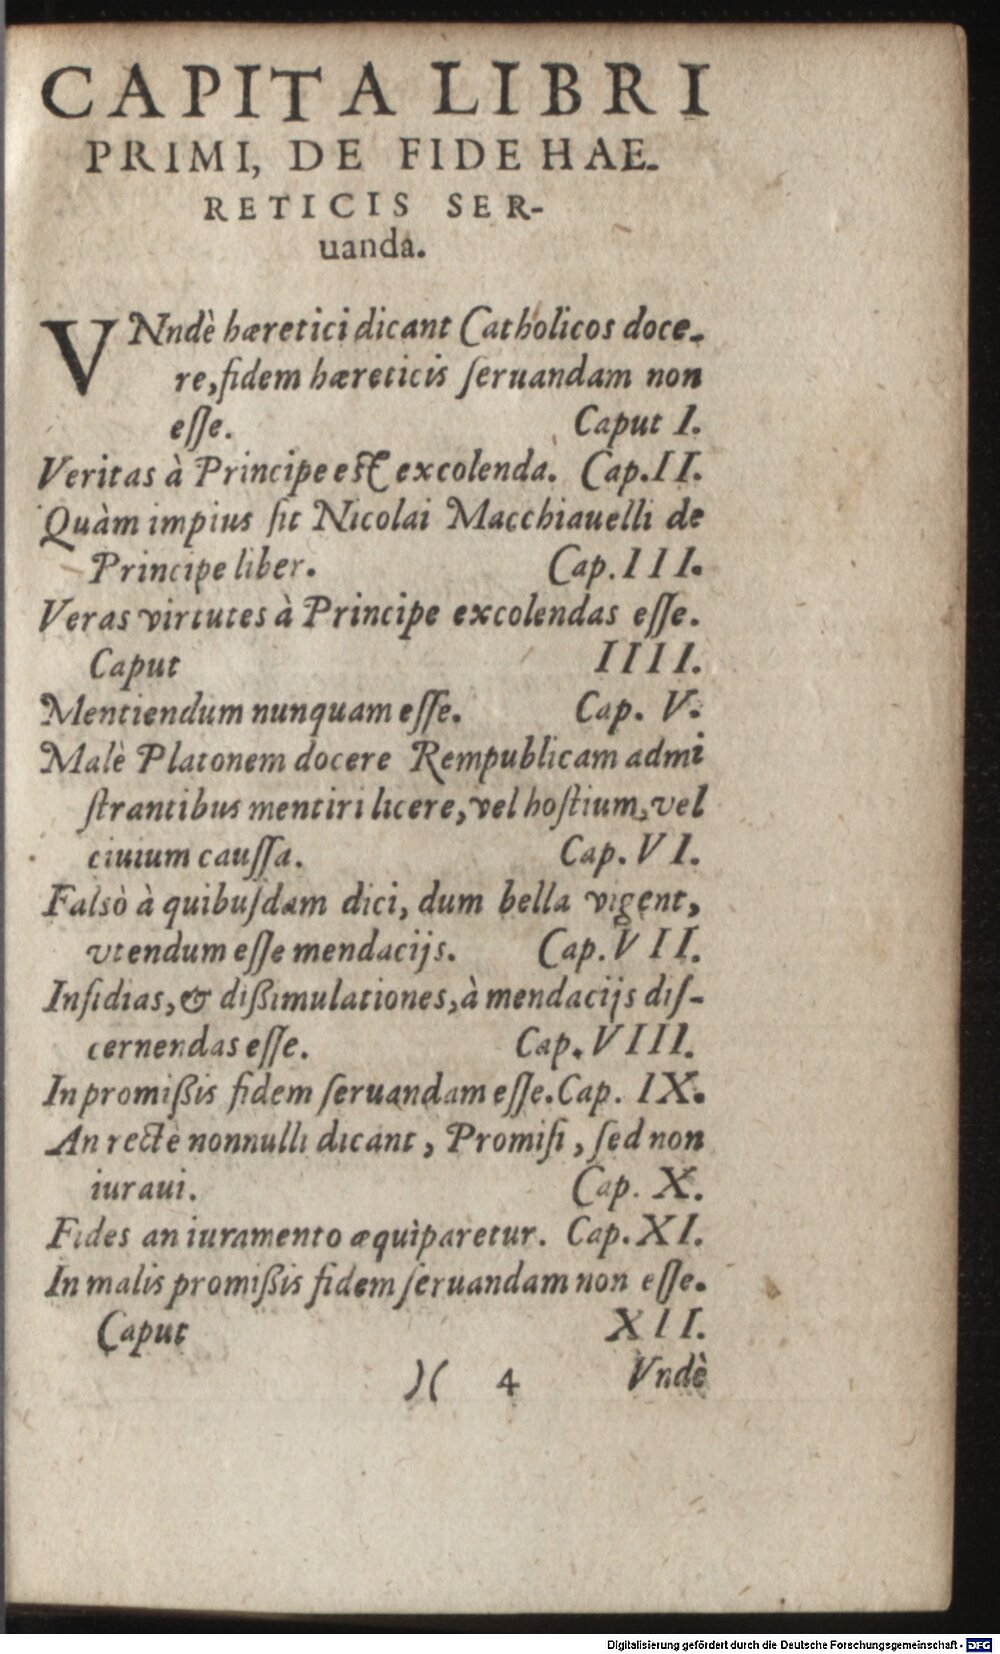 CAPITA LIBRI
PRIMI, DE FIDE HAE-
RETICIS SER-
uanda.
VNndè hæretici dicant Catholicos doce-
re, fidem hæreticis ſeruandam non
eſſe. Caput I.
Veritas à Principe est excolenda. Cap. II.
Quàm impius ſit Nicolai Macchiauelli de
Principe liber. Cap. III.
Veras virtutes à Principe excolendas eſſe.
Caput IIII.
Mentiendum nunquam eſſe. Cap. V.
Malè Platonem docere Rempublicam admi
ſtrantibus mentiri licere, vel hoſtium, vel
ciuium cauſſa. Cap. VI.
Falsò à quibuſdam dici, dum bella vigent,
vtendum eſſe mendacijs. Cap. VII.
Inſidias, & dißimulationes, à mendacijs diſ-
cernendas eſſe. Cap. VIII.
In promißis fidem ſeruandam eſſe. Cap. IX.
An rectè nonnulli dicant, Promiſi, ſed non
iuraui. Cap. X.
Fides an iuramento æquìparetur. Cap. XI.
In malis promißis fidem ſeruandam non eſſe.
Caput XII.
)( 4 Vndè
Digitalisierung gefördert durch die Deutsche Forschungsgemeinschaft - DFG